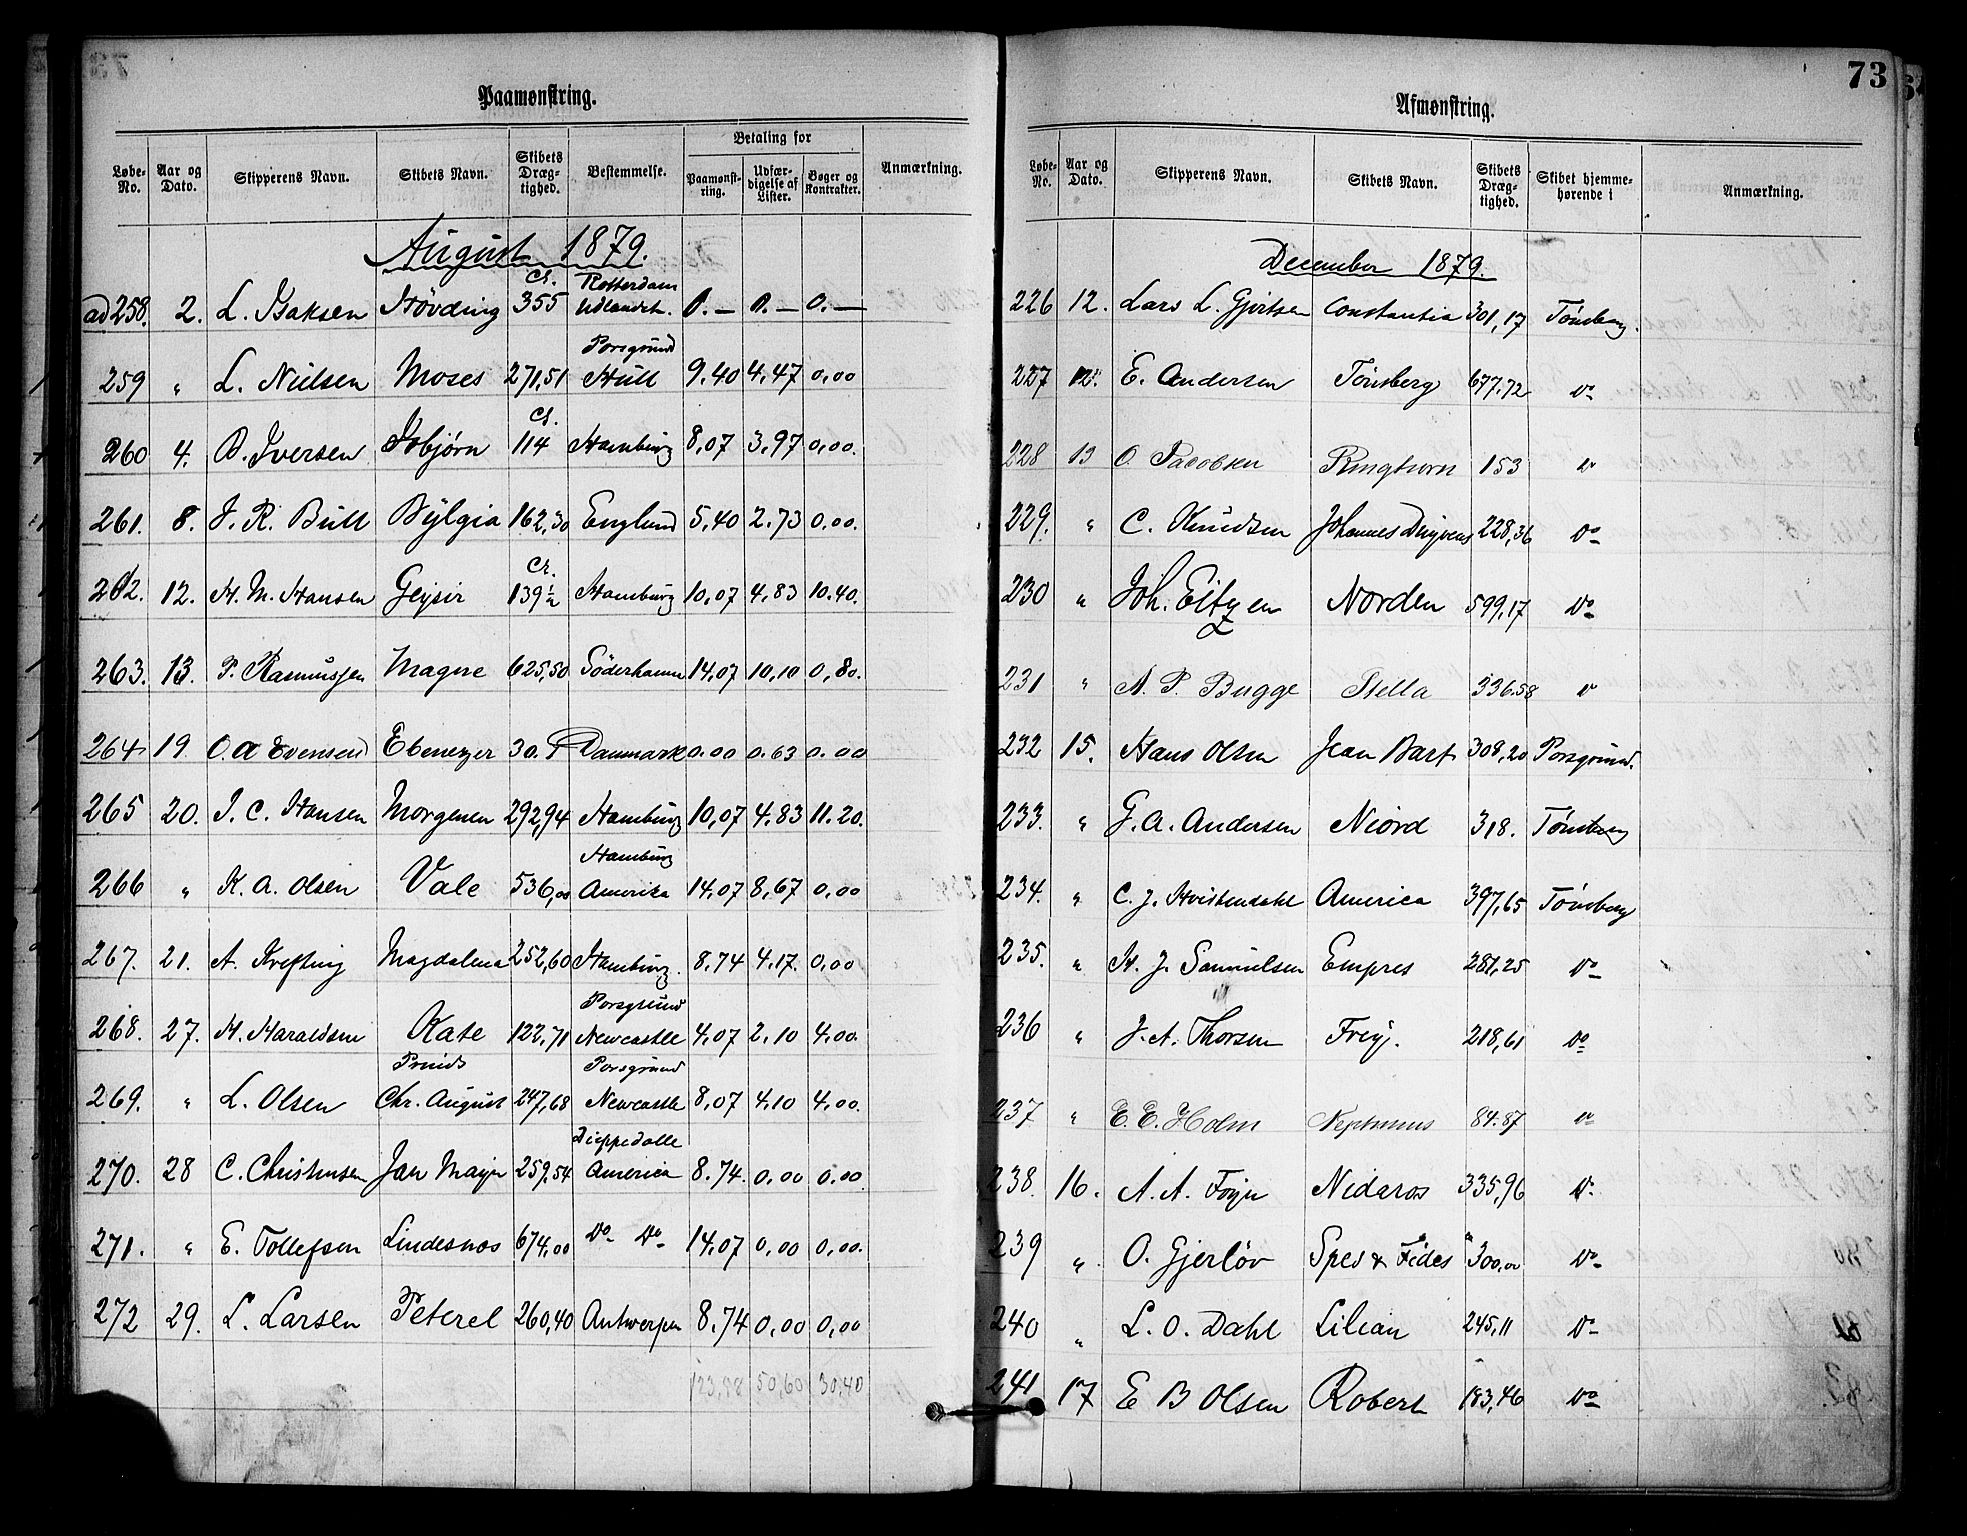 73
Paamønstring.
Løbe-No. Aar og Dato. Skipperens Navn. Skibets Navn. Skibets Dræg-tighed. Bestemmelse. Betaling for Paamønst-ring. Udfær-digelse af Lister. Bøger og Kontrakter. Anmærkning.
August 1879.
Cl. Rotterdam
ad 258. 2. L. Isaksen Hövding 355 Udlandet. 0.— 0.— 0.—
Porsgrund
259 " L. Nielsen Moses 271,51 Hull 9.40 4.47 0,00
Cl.
260 4. B. Iversen Isbjørn 114 Hamburg 8,07 3,97 0,00.
261. 8. J. R. Bull Bylgia 162,30 England 5,40 2.73 0,00.
Cl.
262. 12. H. M. Hansen Geysir 139½ Hamburg 10,07 4.83 10.40.
263. 13. P. Rasmussen Magne 625,50 Söderhamn 14,07 10,10 0,80.
264 19 O. A Evensen Ebenezer 30. T Danmark 0.00 0.63 0.00
265 20. J. C. Hansen Morgenen 292,94 Hamburg 10,07 4.83 11.20.
Hamburg
266 " K. A. Olsen Vale 536,00 Amerika 14,07 8,67 0,00
267. 21. A. Krefting Magdalena 252,60 Hamburg. 8.74 4.17. 0,00
Porsgrund
268. 27. H. Haraldsen Kate 122,71 Newcastle 4,07 2.10 4,00.
Prinds Porsgrund
269. " L. Olsen Chr. August 247,68 Newcastle 8,07 4,10 4,00.
Dieppedalle
270. 28 C. Christensen Jan Mayn 259,54 America 8.74. 0,00 0,00
271. " E. Tollefsen Lindesnæs 674,00 Do Do 14,07 0,00 0,00.
272 29. L. Larsen Peterel 260,40 Antwerpen 8.74 0,00 0,00
123,58 50,60 30,40
Afmønstring.
Løbe-No. Aar og Dato. Skipperens Navn. Skibets Navn. Skibets Dræg-tighed. Skibet hjemme-hørende i Anmærkning.
December 1879.
226 12. Lars L. Gjertsen Constantia 301,17 Tönsberg.
227 12. E. Andersen Tönsberg 677,72 Do
228 13 O. Jacobsen Ringhorn 153 Do
229. " C. Knudsen 228,36 Do
230 " Joh. Eitzen Norden 599,17 Do
231 " A. P. Bugge Stella 336.58 Do
232 15. Hans Olsen Jean Bart 308,20 Porsgrund.
233. " G. A. Andersen Niörd 318. Tönsberg
234. " C. J. Hvistendahl America 397,65 Tönsberg
235. " H. J. Samuelsen Empres 281,25 Do
236 " J. A. Thorsen Frey. 218,61 Do
237 " E. E. Holm Neptunus 84.87 Do
238. 16. A. A. Foyn Nidaros 335,96 Do
239 " O. Gjerløv Spes & Fides 300,00 Do
240 " L. O. Dahl Lilian 245,11 Do
241 17 E B Olsen Robert 183,46 Do